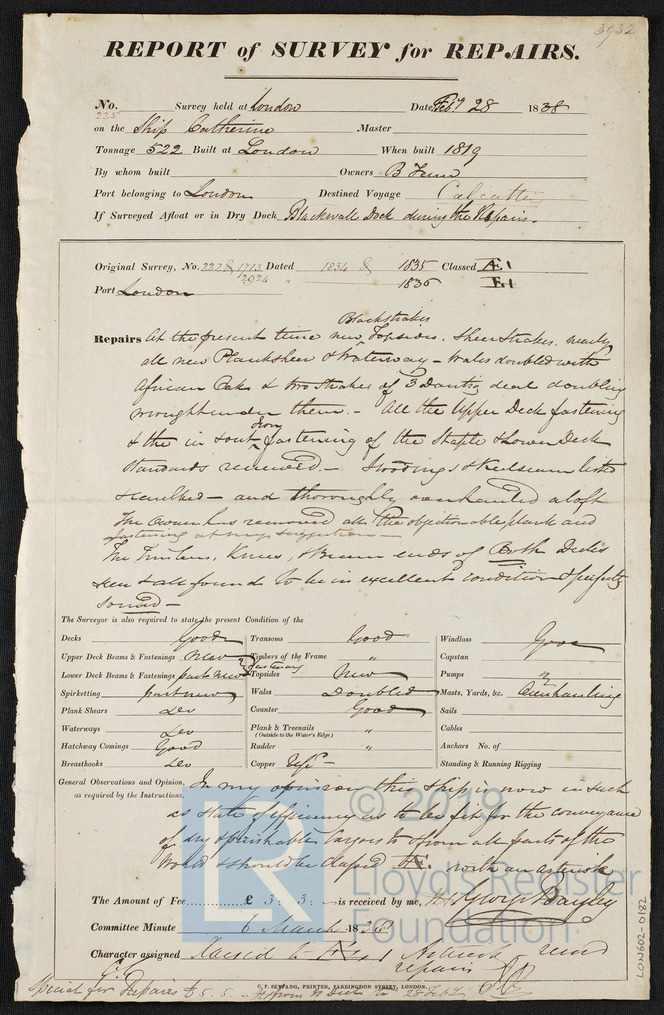 3932
REPORT of SURVEY for REPAIRS.
No. 225 Survey held at London Date Feby 28 1838
on the Ship Catherine Master
Tonnage 522 Built at London When built 1819
By whom built Owners B
Port belonging to London Destined Voyage Calcutta
If Surveyed Afloat or in Dry Dock Blackwall Dock during the Repairs.
Original Survey, No. 222 & 1713 Dated 1834 & 1835 Classed Æ 1
2924 " 1836 E.1
Port London
Blackstrakes
Repairs At the present time new Topsides, Sheerstrakes, nearly
all new Planksheer & Waterway - Wales doubled with
African Oak & two Strakes of 3 Dantzig deal doubling
wrought under them. - All the Upper Deck fastening
Iron
& the in & out fastening of the Staple & Lower Deck
Standards renewed. - & Keelson
& caulked - and thoroughly overhauled aloft
The Owner has removed all the objectionable plank and
fastening at my suggestion -
The Timbers, Knees, & Beam ends of Both Decks
seen & all found to be in excellent condition & perfectly
sound -
The Surveyor is also required to state the present Condition of the
Decks Good
Upper Deck Beams & Fastenings New
Lower Deck Beams & Fastenings part new
Spirketting part new
Plank Shears Do
Waterways Do
Hatchway Comings Good
Breasthooks Do
Transoms Good
Timbers of the Frame "
& fastening
Topsides New
Wales Doubled
Counter Good
Plank & Treenails "
(Outside to the Water's Edge)
Rudder "
Copper
Windlass Good
Capstan
Pumps
Masts, Yards, &c. Overhauling
Sails
Cables
Anchors No. of
Standing & Running Rigging
General Observations and Opinion, In my opinion this ship is now in such
as required by the Instructions, a state of efficiency as to be fit for the conveyance
of dry & perishable Cargoes to & from all parts of the
World & should be classed Æ. with an asterisk
© 2019
LR
Lloyd's Register
Foundation
The Amount of Fee £ 3: 3: - is received by me, George Bayley
Committee Minute 6 March 1838
Character assigned Raised to Æ 1 Asterisk
repairs
C. F. SEYFANG, PRINTER, FARRINGDON STREET, LONDON.
Special for Repairs £ 5. 5. - 28 Feby
LON602-0182